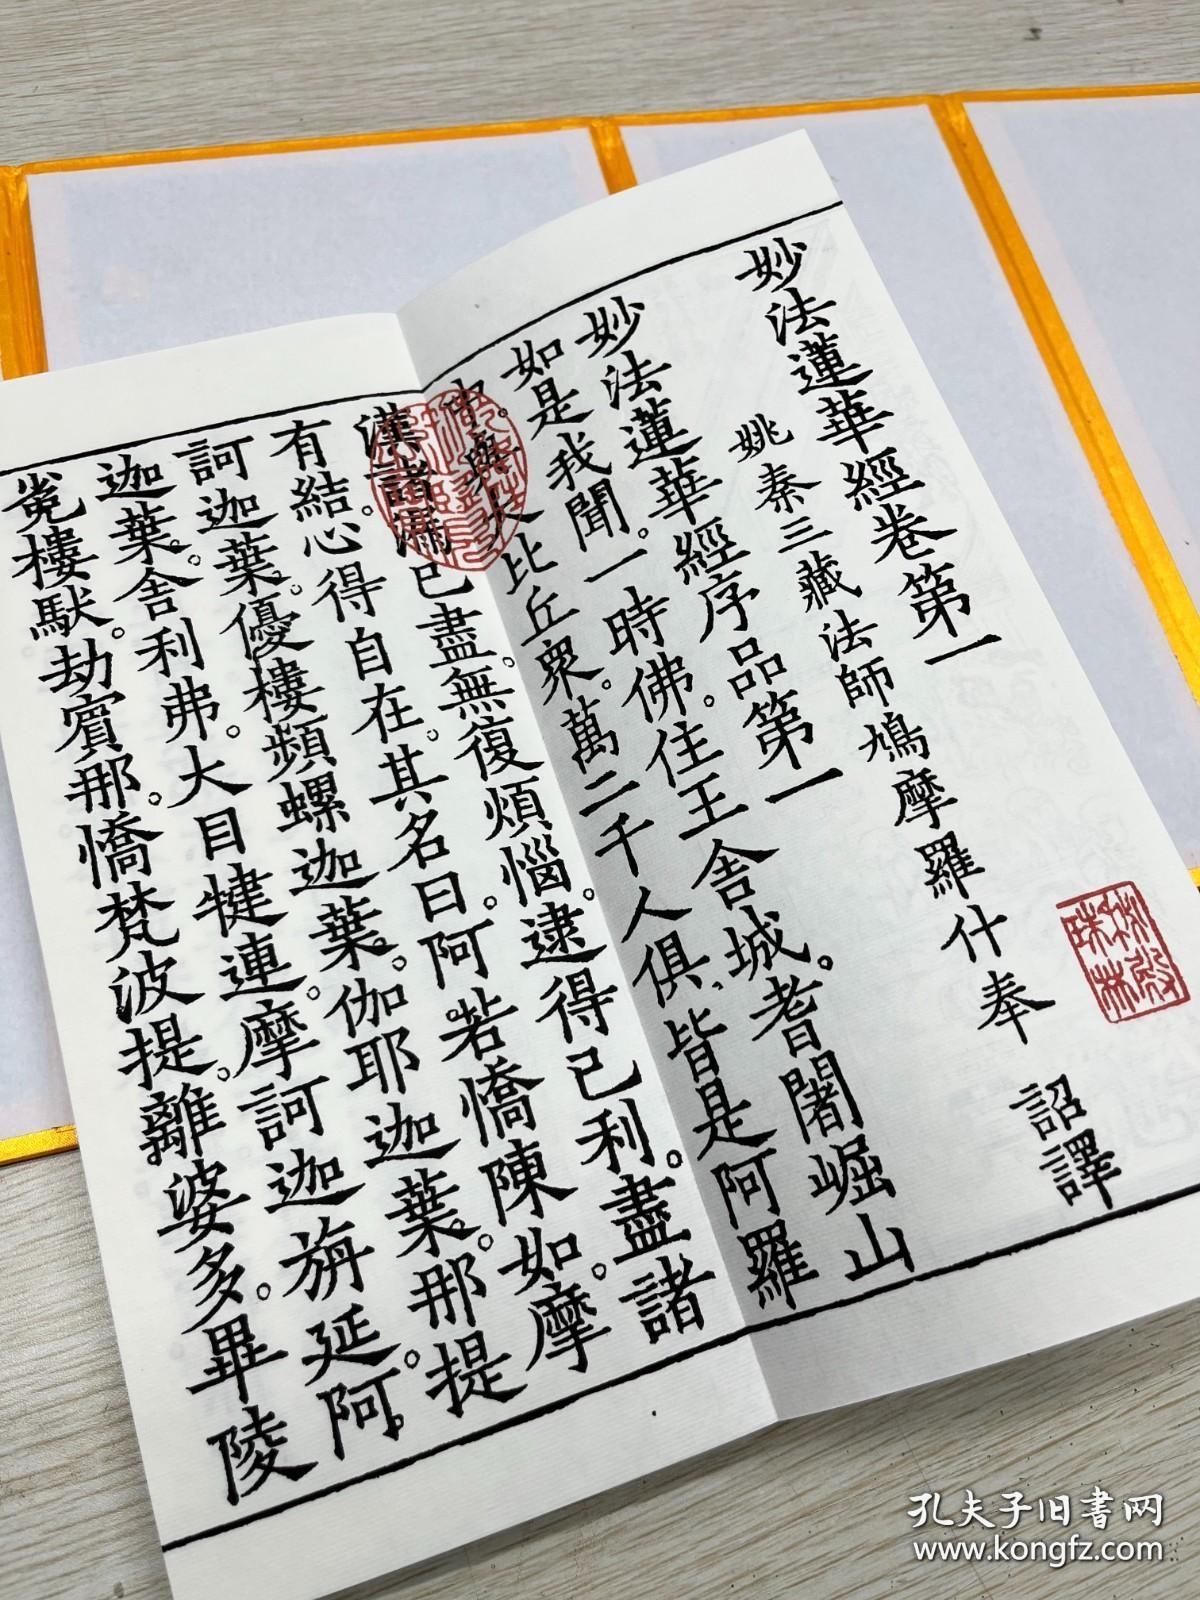 妙法蓮華經卷第一
姚秦三藏法師鳩摩羅什奉　詔譯
妙法蓮華經序品第一
如是我聞。一時佛。住王舍城。耆闍崛山
中。與大比丘眾。萬二千人俱。皆是阿羅
漢。諸漏已盡。無復煩惱。逮得己利。盡諸
有結。心得自在。其名曰。阿若憍陳如。摩
訶迦葉。優樓頻螺迦葉。伽耶迦葉。那提
迦葉。舍利弗。大目犍連。摩訶迦旃延。阿
㝹樓馱。劫賓那。憍梵波提。離婆多。畢陵
孔夫子旧书网
www.kongfz.com